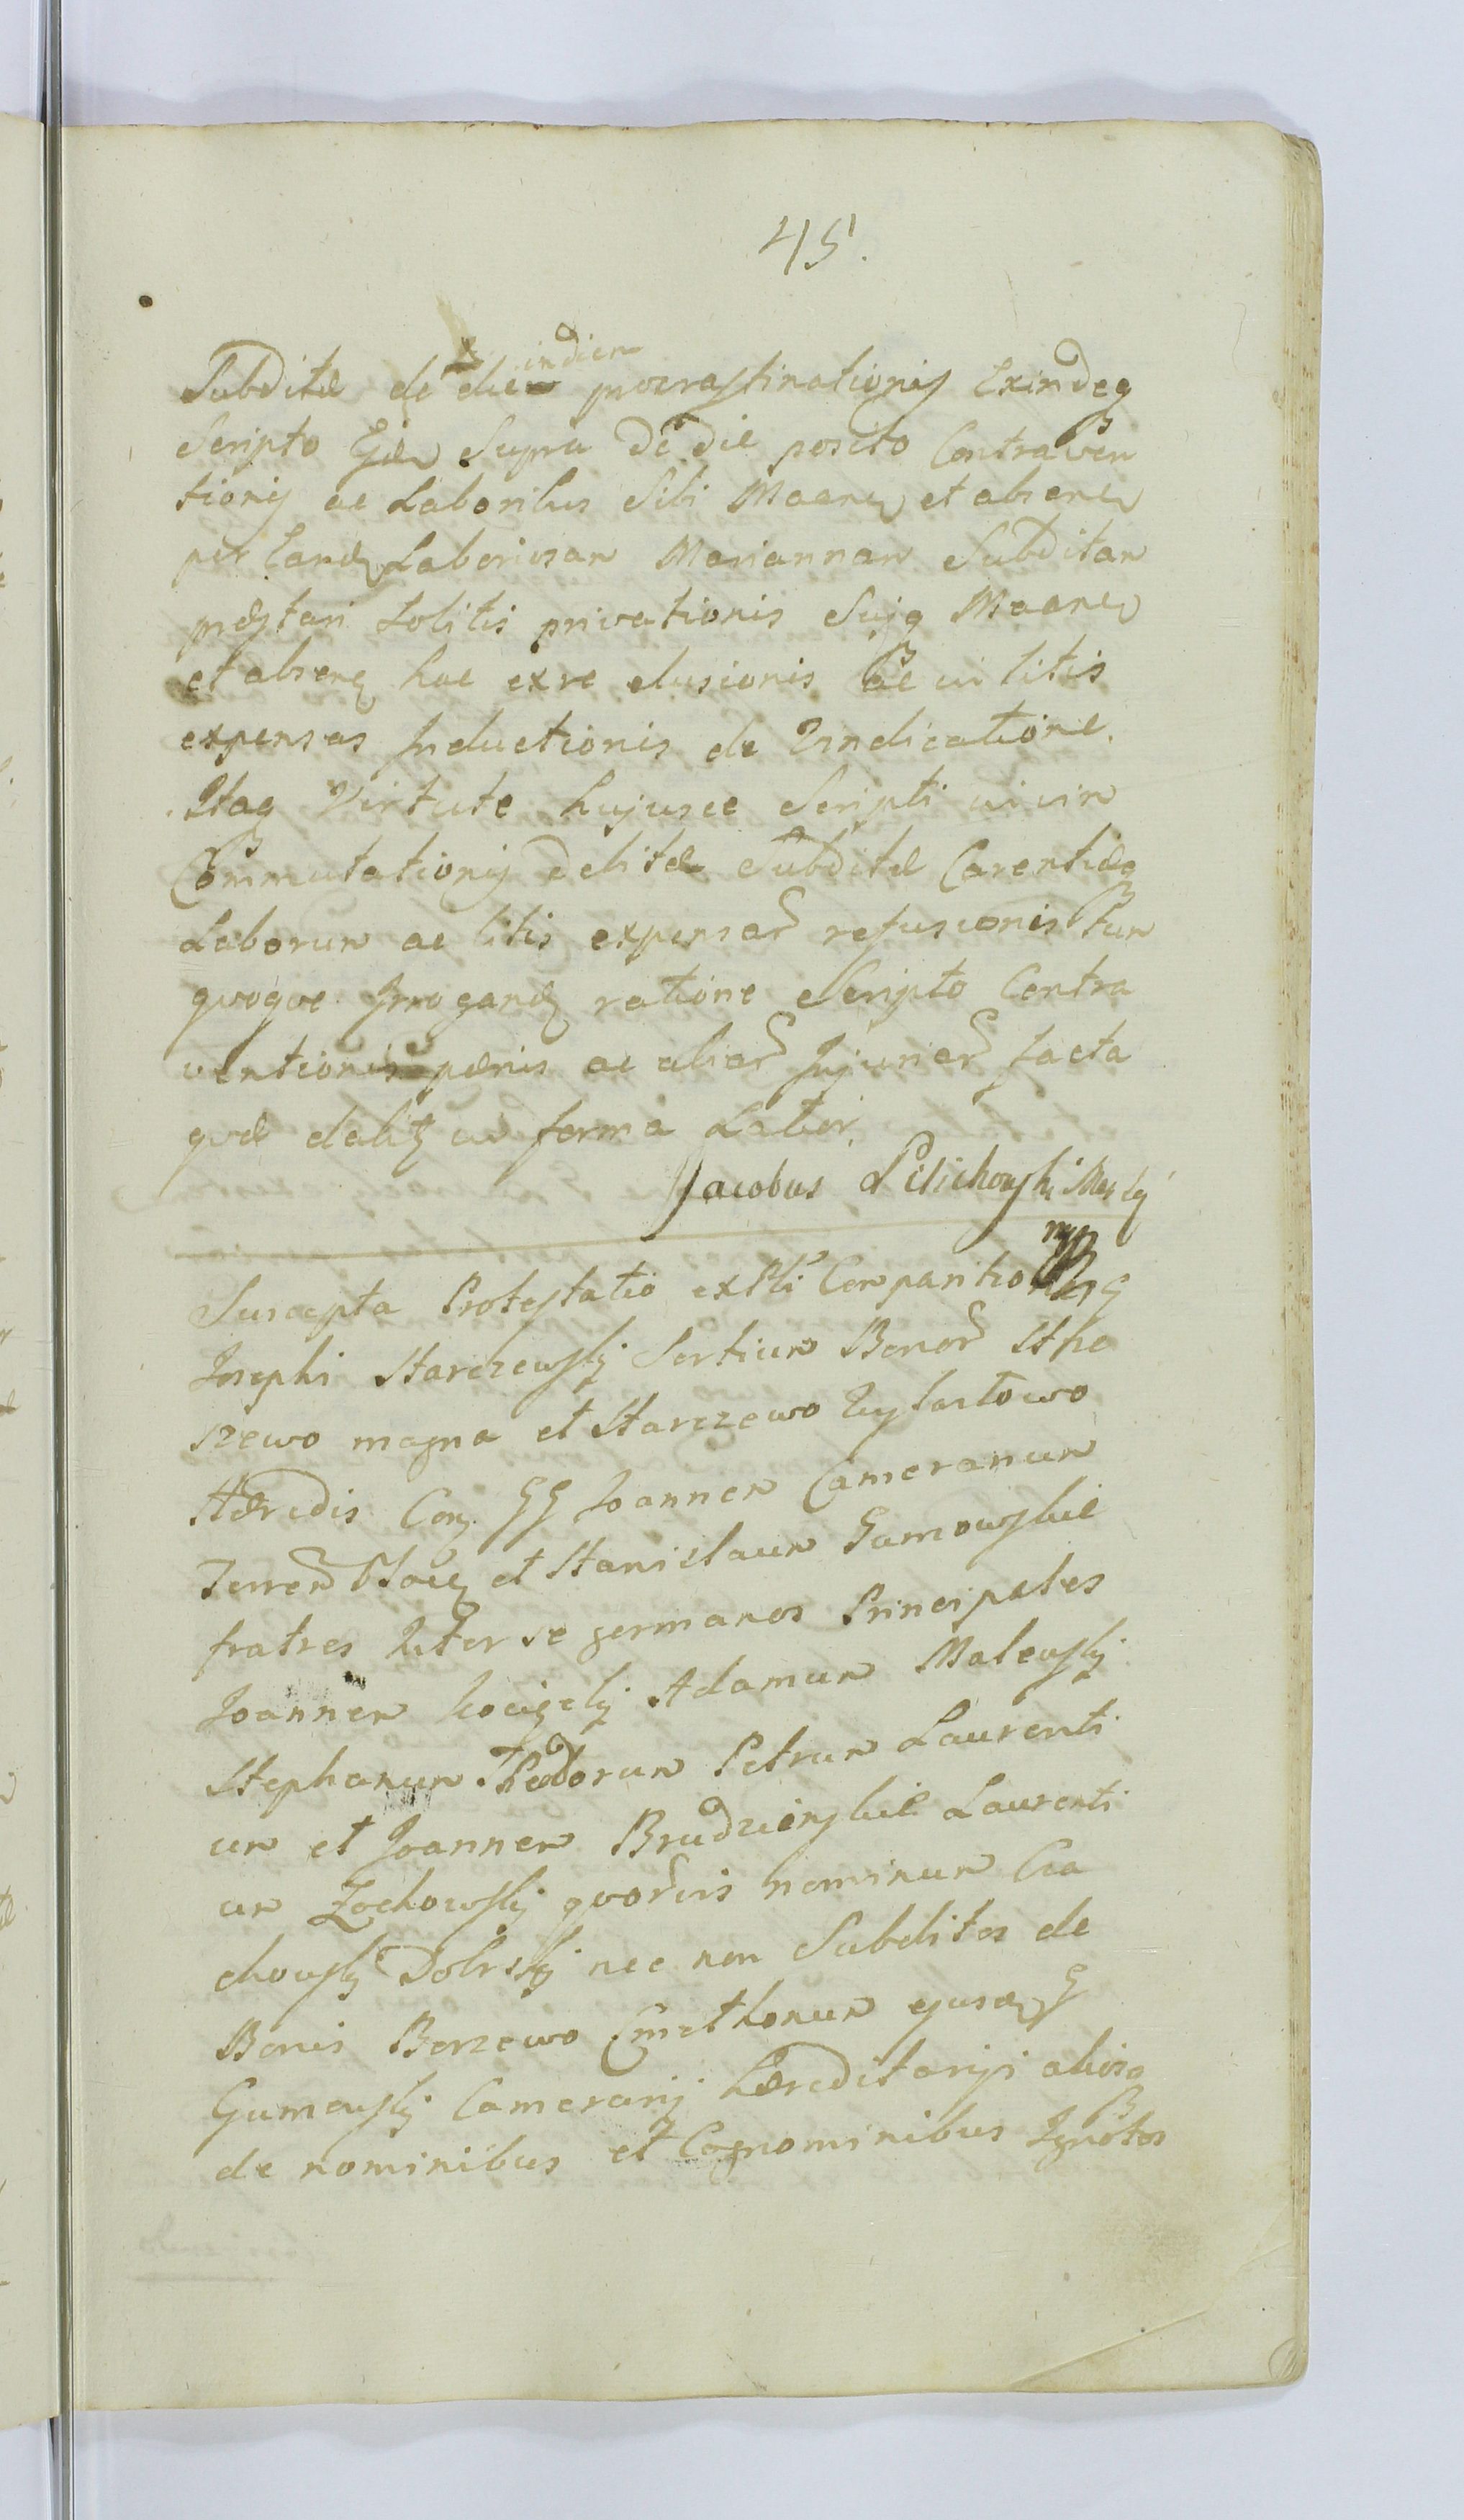 45.
indiem
Subditæ de die procrastinationis Exindeq
Scripto Ejdem Supra de die posito Contraven
tionis ac Laboribus Sibi Maaren et absene
per Eand Laboriosam Mariannam Subditam
præstari Solitis privationis Sujq Maaren
et absene hac exre elusionis ac in litis
expensas Inductionis de Vindicatione.
Itaq Virtute hujusce Scripti
Commutationis debitæ Subditæ Carentiæq
Laborum ac litis expensar refusionis tum
qvoqve Irrogand ratione Scripto Contra
ventionis pænis ac aliar Injuriar facta
qvæ debitt in forma Latior.
Jacobus Pilichowski
mp
Suscepta Protestatio exPti Comparitio
Josephi Starczewskj Sortium Bonor Stho
szewo magna et Starczewo
Hæredis Con. GG Joannem Camerarium
Terren et Stanislaum Gumowskie
fratres Inter se germanos Principales
Joannem Adamum Malewskj
Stephanum Theodorum Petrum Laurenti
um et Joannem Brudzienskie Laurenti
um Zochowskj qvorvis nominum Cia
chowskj Dobrskj nec non Subditos de
Bonis Borzewo Cmethonum ejusd G
Gumowskj Camerarij hæreditarijs aliosq
de nominibus et Cognominibus Ignotos